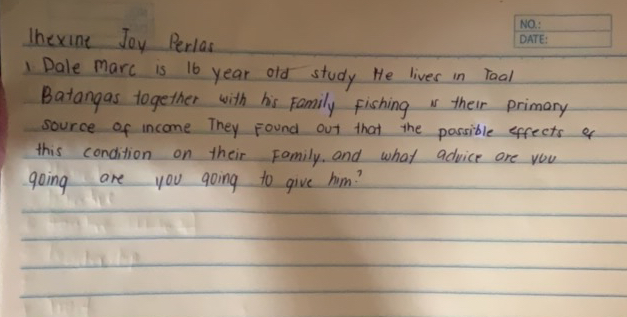 NO.:
DATE:
Ihexine Joy Perlas
1 Dale Marc is 16 year old study He lives in Taal
Batangas together with his Family Fishing is their primary
source of income They Found out that the possible effects of
this condition on their Family. and what advice are you
going are you going to give him?